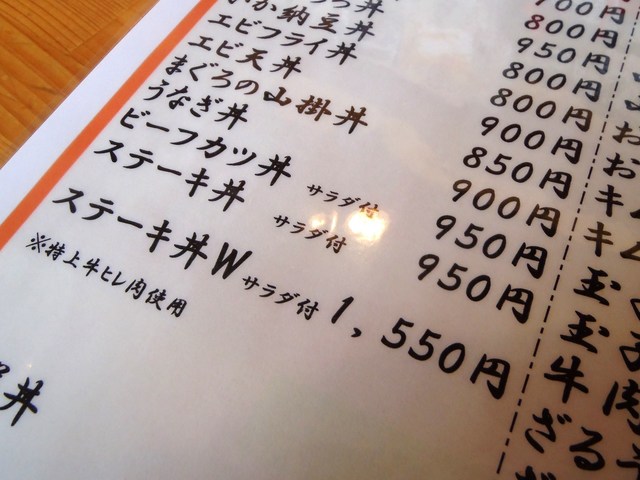 丼 950円
か納豆丼 800円
エビフライ丼 800円
エビ天丼 900円
まぐろの山掛丼 850円
うなぎ丼 900円
ビーフカツ丼 サラダ付 950円
ステーキ丼 サラダ付 950円
ステーキ丼W サラダ付 1,550円
※特上牛ヒレ肉使用
丼
800円
00円
お
お
キ
キ
玉
玉
牛
ざる